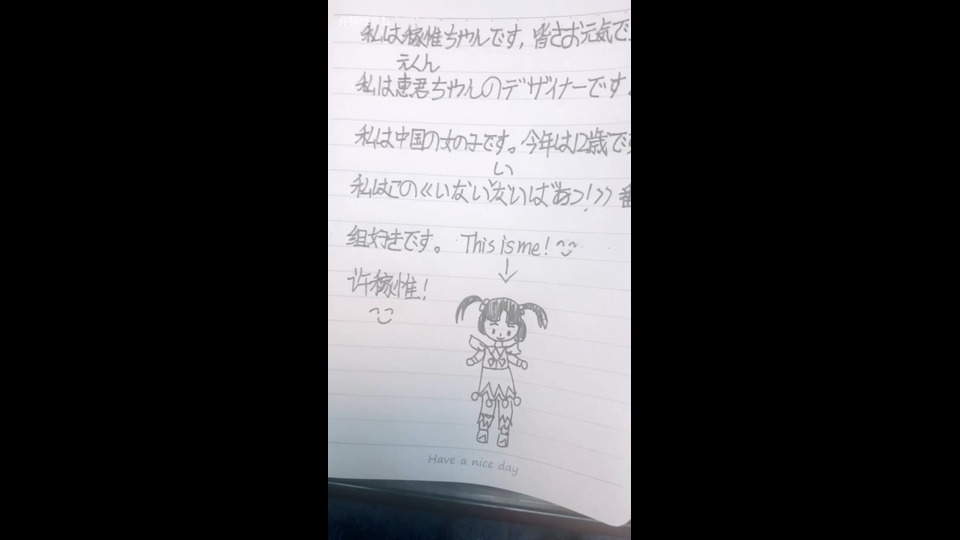 私は稼惟ちゃんです，皆さお元気で
えくん
私は恵君ちゃんのデザイナーです。
私は中国の女の子です。今年は12歳で
い
私はこの《いないないばあっ!》番
组好きです。 This is me!
许稼惟!
Have a nice day